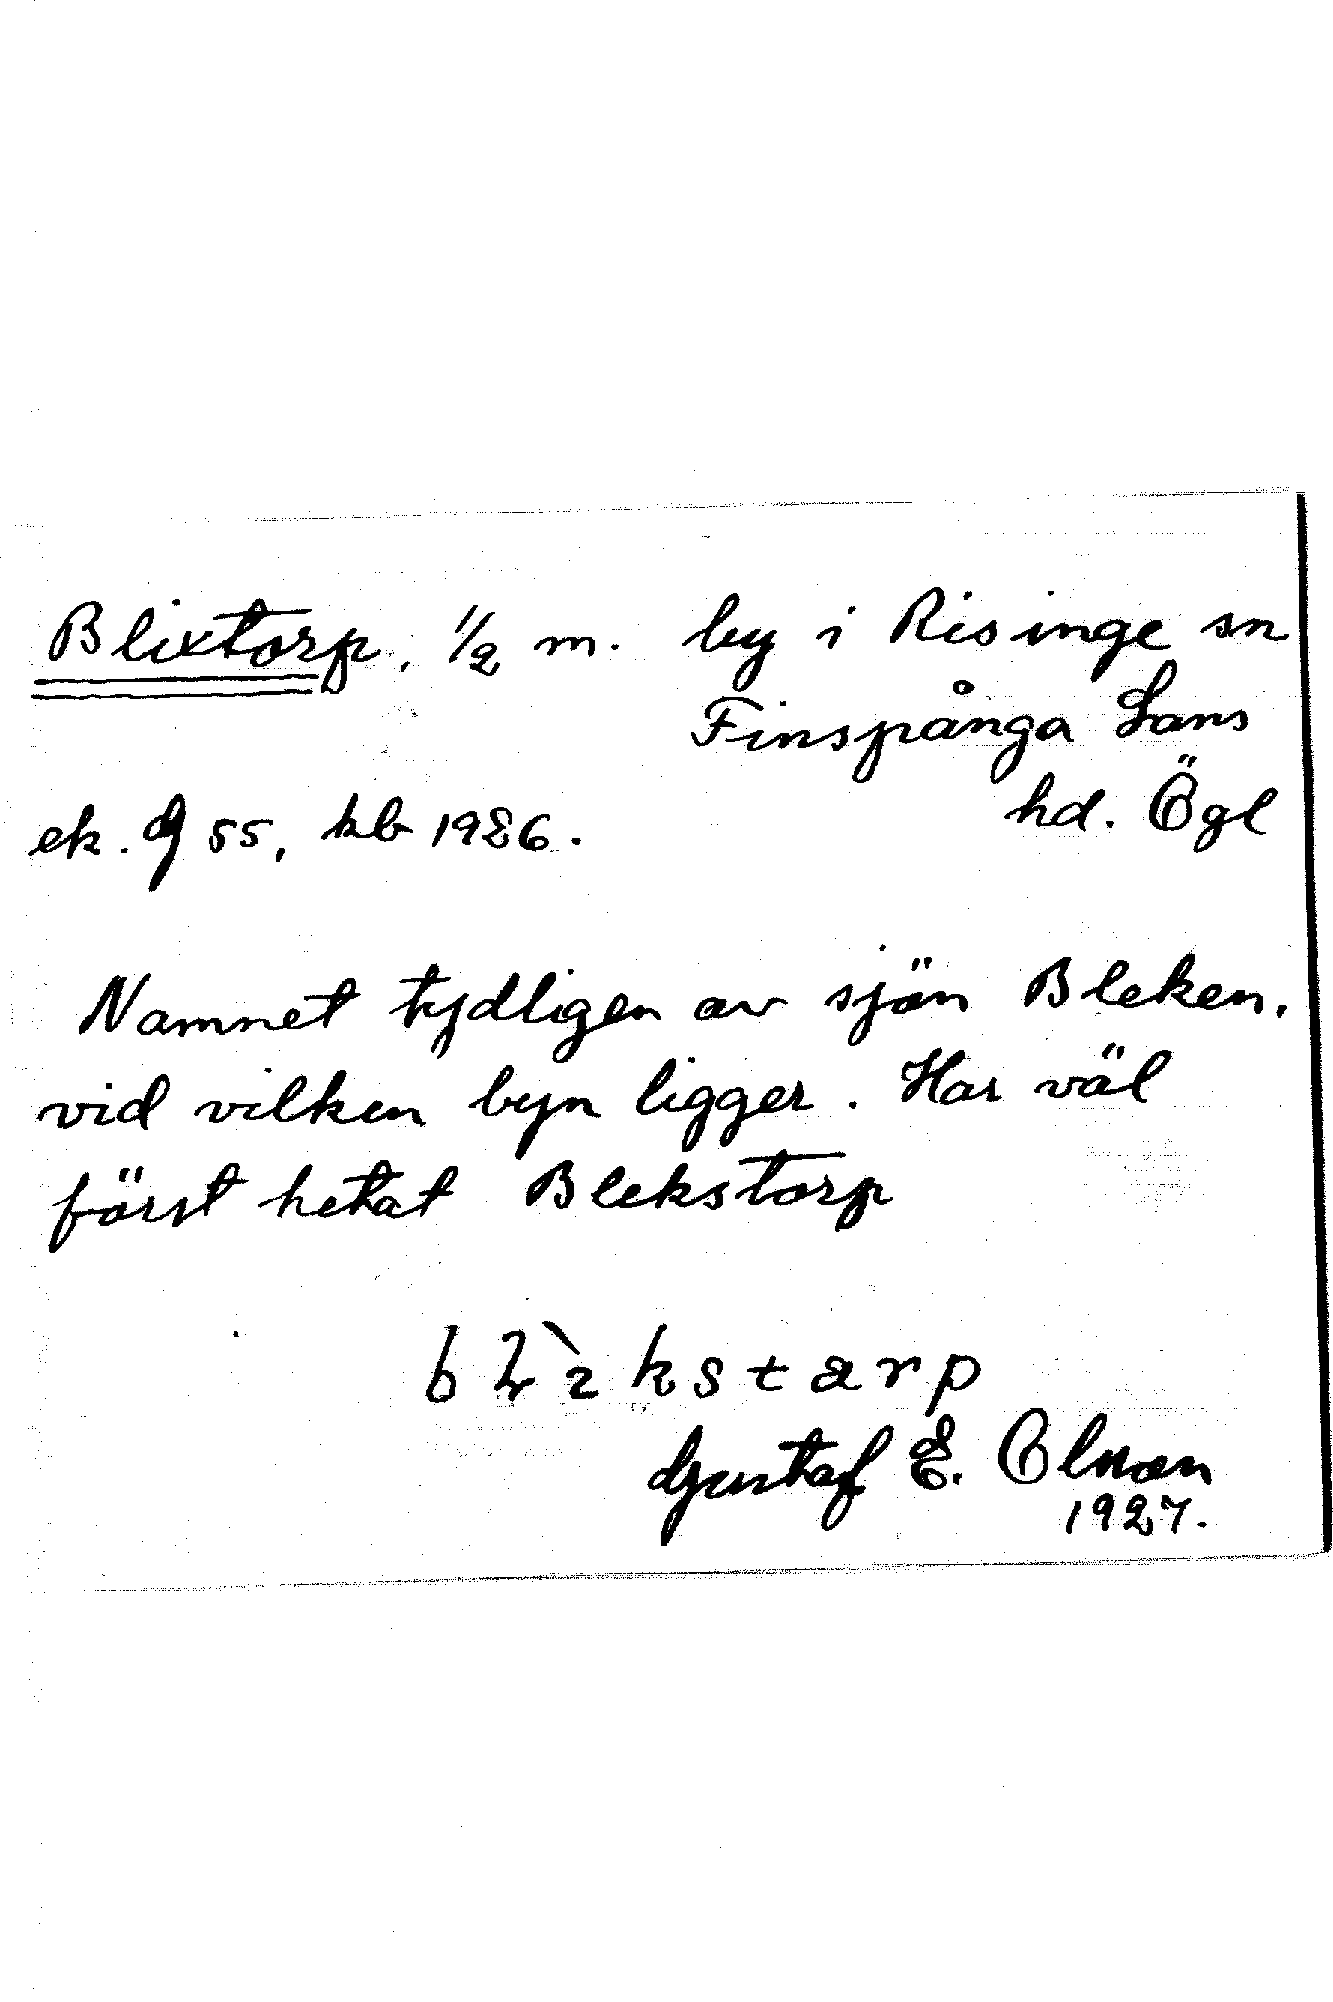 Blixtorp, 1/2 m. by i Risinge sn
Finspånga Läns
hd. Ögl
ek. 55, kb 1926.
Namnet tydligen av sjön Bleken,
vid vilken byn ligger. Har väl
först hetat Blekstorp
Gustaf E. Olman
1927.